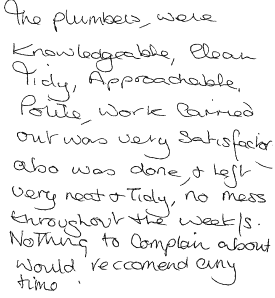 The plumbers, were
Knowledgeable, Clean
Tidy, Approachable,
Polite, Work Carried
out was very satisfactor
also was done, & left
very neat & Tidy, no mess
throughout the week/s.
Nothing to Complain about
Would reccomend any
time.